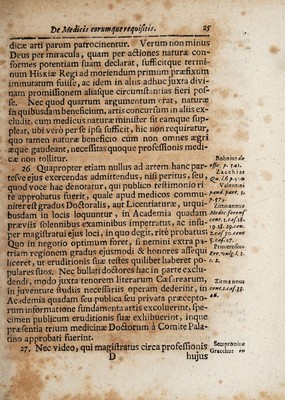 De Medicis eorumque requisitis. 25
dicæ arti parum patrocinentur. Verum non minus
Deus per miracula, quam per actiones naturæ con-
formes potentiam suam declarat, sufficitque termi-
num Hiskiæ Regi ad moriendum primum præfixum
immutatum fuisse, ac idem in aliis adhuc juxta divi-
nam promissionem aliasque circumstantias fieri pos-
se. Nec quod quartum argumentum erat, naturæ
in quibusdam beneficium, artis concursum in aliis ex-
cludit. cum medicus naturæ minister sit eamque sup-
pleat, ubi verò per se ipsa sufficit, hic non requiratur,
quo tamen naturæ beneficio cum non omnes ægri
æque gaudeant, necessitas quoque professionis medi-
cæ non tollitur.
26 Quapropter etiam nullus ad artem hanc par-
tesve ejus exercendas admittendus, nisi peritus, seu,
quod voce hac denotatur, qui publico testimonio ri-
te approbatus fuerit, quale apud medicos commu-
niter est gradus Doctoralis, aut Licentiaturæ, utqui-
busdam in locis loquuntur, in Academia quadam
præviis solennibus examinibus impetratus, ac insu-
per magistratui ejus loci, in quo degit, ritè probatus.
Quo in negotio optimum foret, si nemini extra pa-
triam regionem gradus ejusmodi & honores assequi
liceret, ut eruditionis suæ testes quilibet haberet po-
pulares suos. Nec bullati doctores hac in parte exclu-
dendi, modo juxta tenorem literarum Cæsarearum,
in juventute studiis necessariis operam dederint, in
Academia quadam seu publica seu privata præcepto-
rum informatione fundamenta artis excoluerint, speci-
men publicum eruditionis suæ exhibuerint, inque
præsentia trium medicinæ Doctorum à Comite Pala-
tino approbati fuerint.
27. Nec video, qui magistratus circa professionis
D hujus
Bohnius de
offic. p. 541.
Zacchias
Valentini
pand. part. 2.
Zitmannus
Medic. forens
cent. 1. cas. 18.
Primeros.
Zitmannus
cent. 2. cas. 33.
46.
Sempronius
Gracchus in